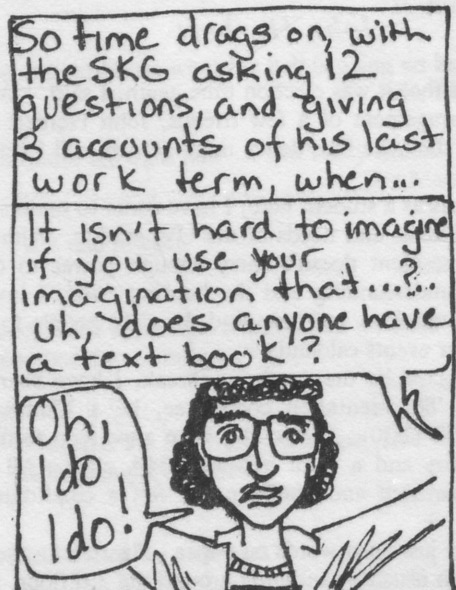 So time drags on, with
the SKG asking 12
questions, and giving
3 accounts of his last
work term, when...
It isn't hard to imagine
if you use your
imagination that...?..
uh, does anyone have
a text book?
Oh,
I do
I do!